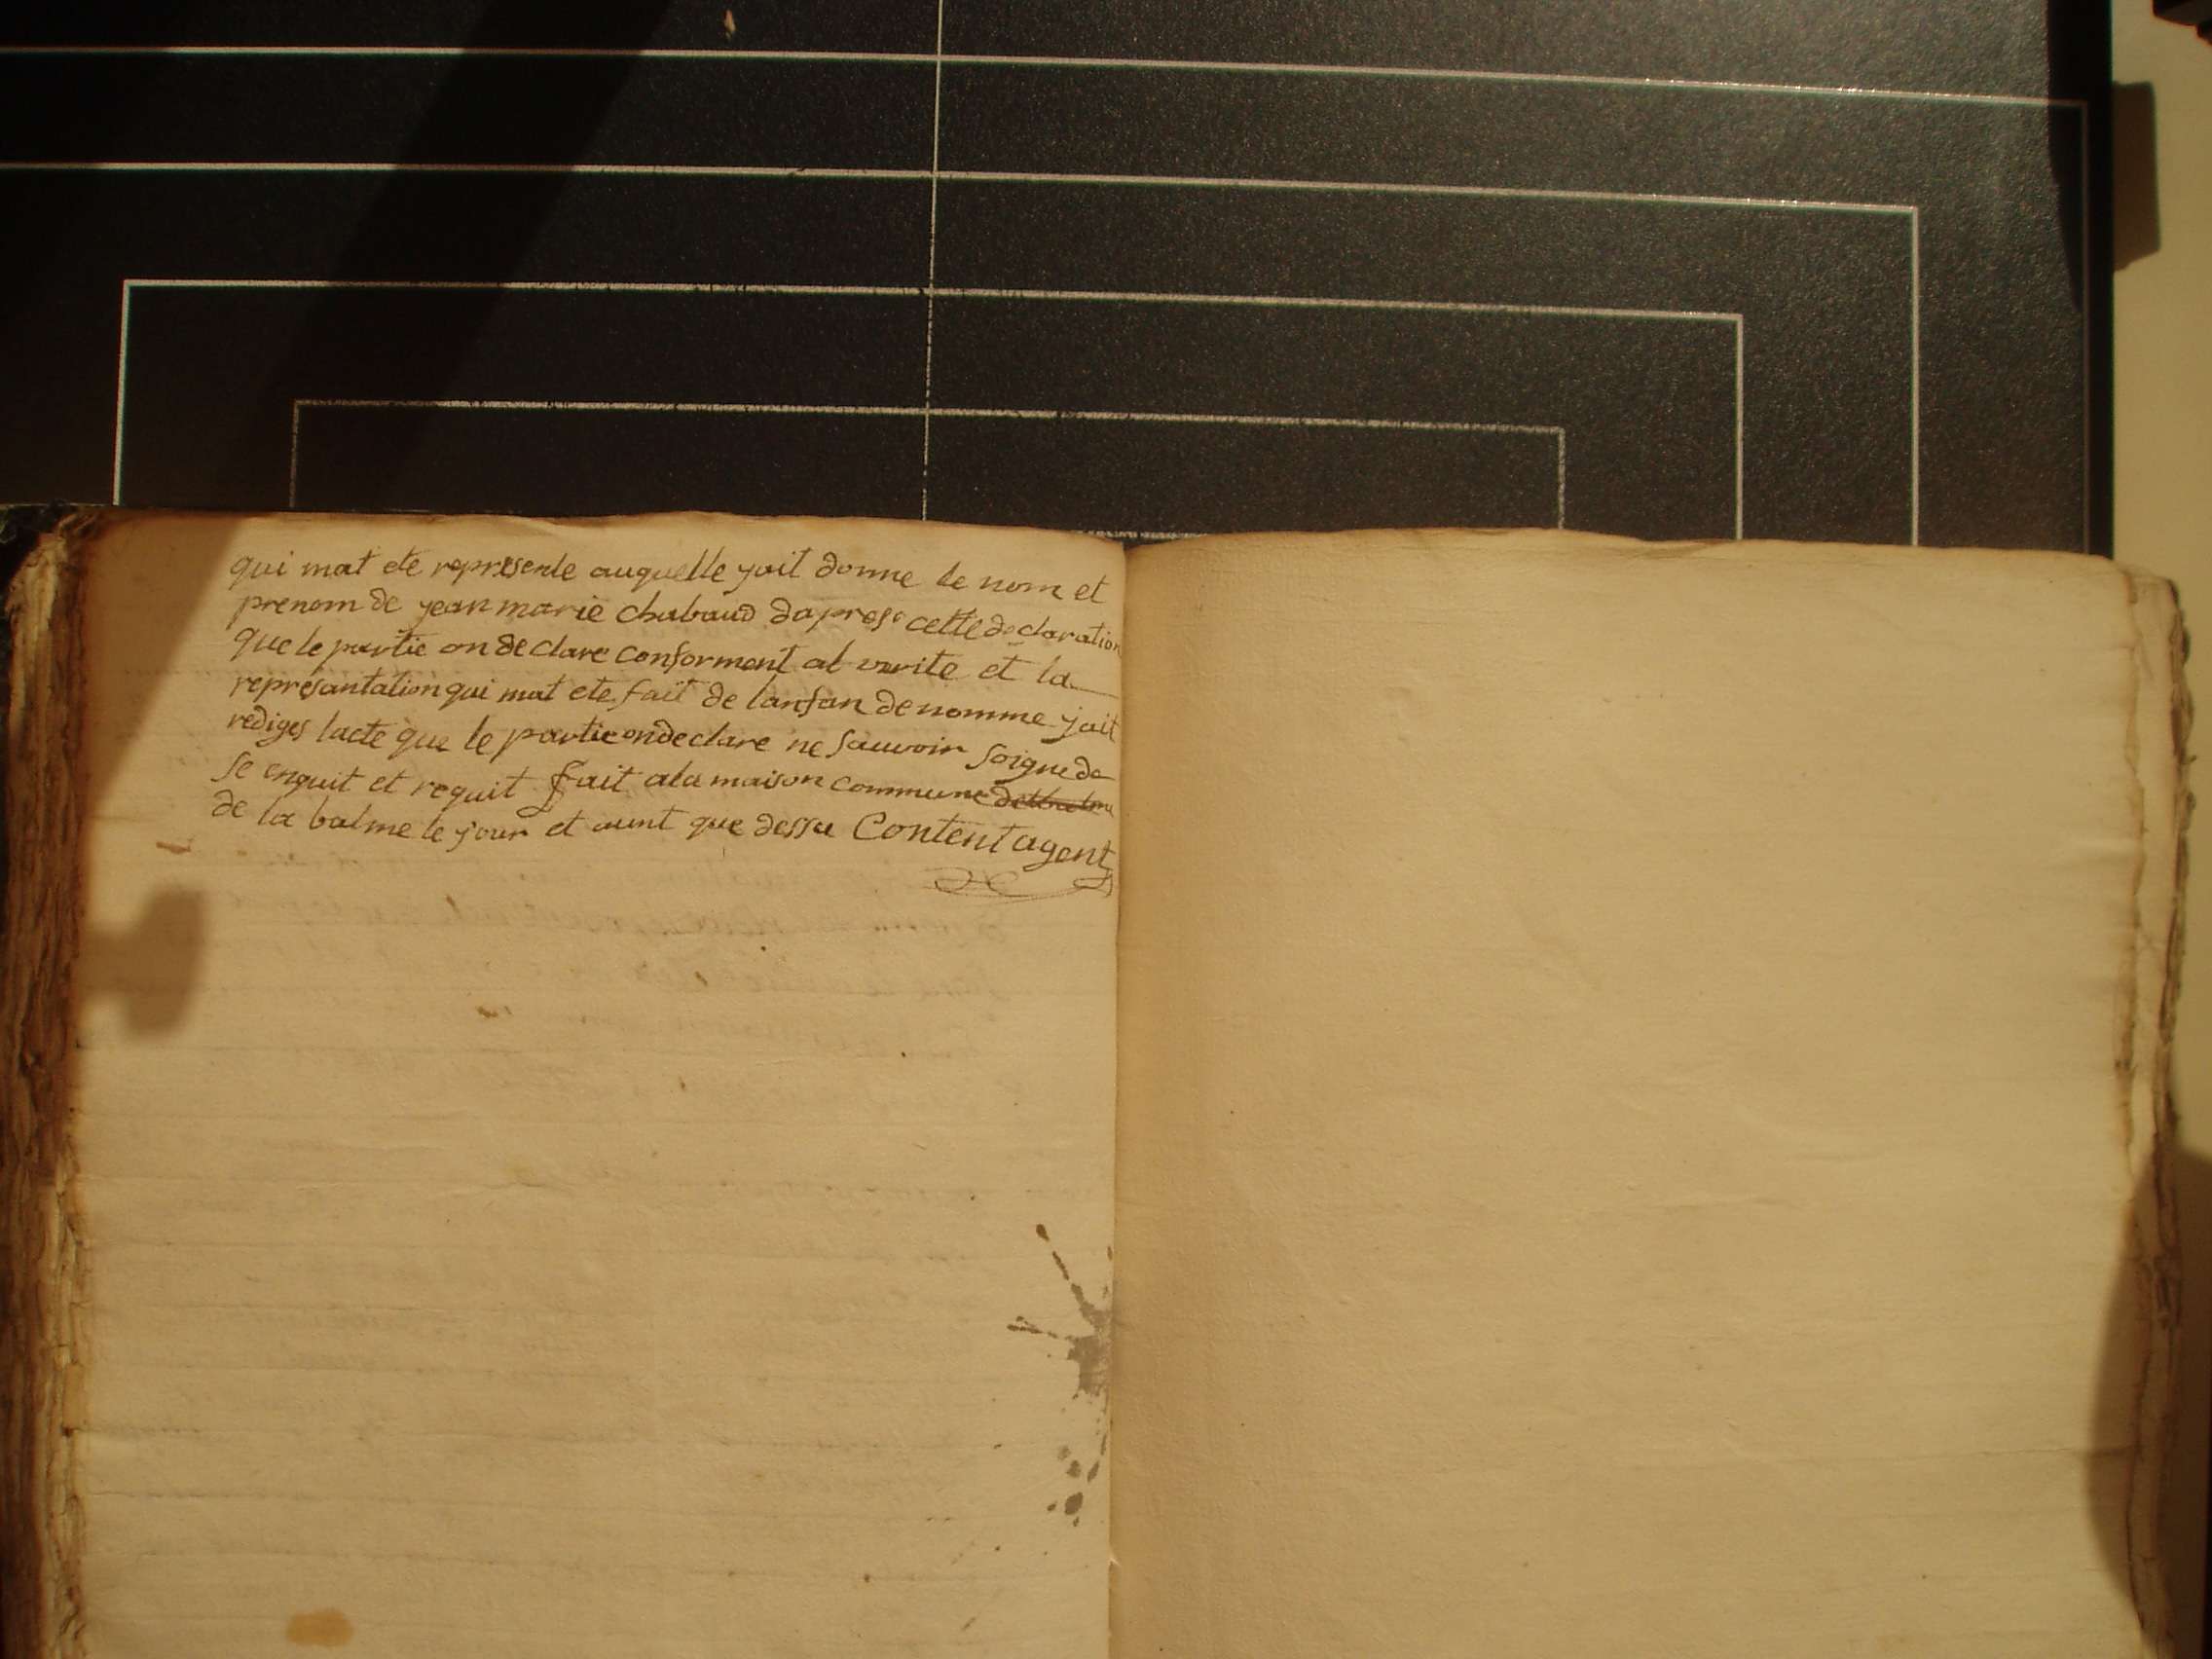 qui mat ete represente auquelle jait donne le nom et
prenom de jean marie chabaud dapres cette declaration
que le partie on declare conforment al verite et la
represantation qui mat ete fait de lanfan denomme jait
rediges lacte que le partie on declare ne sauvoir soigne de
se enquit et requit fait ala maison commune
de la balme le jour et aunt que dessu Content agent